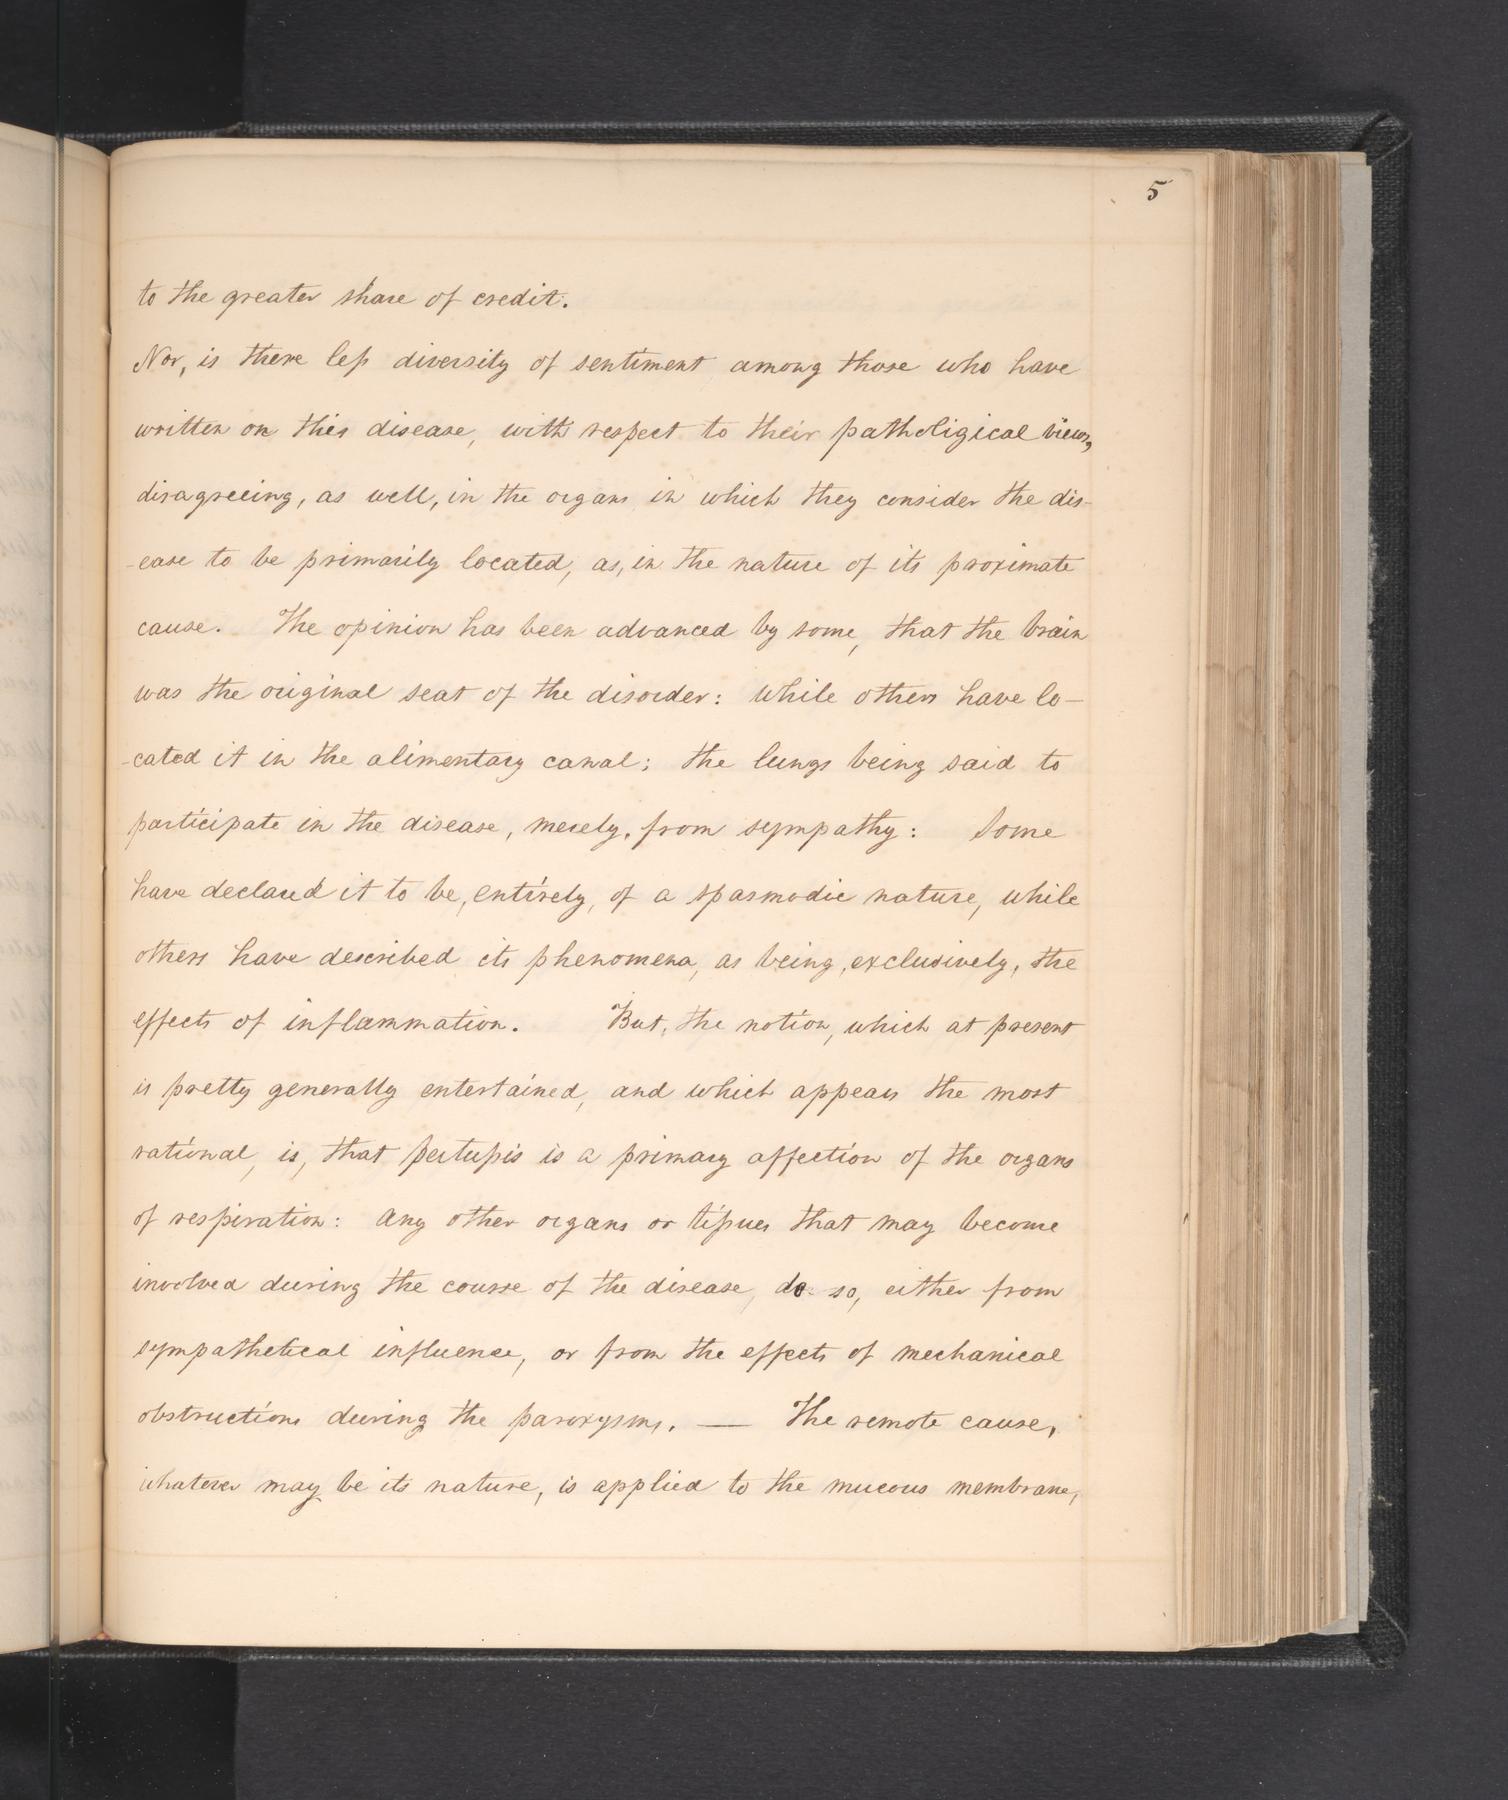 5
to the greater share of credit.
Nor, is there less diversity of sentiment among those who have
written on this disease, with respect to their patholigical views,
disagreeing, as well, in the organs in which they consider the dis-
-ease to be primarily located, as, in the nature of its proximate
cause. The opinion has been advanced by some, that the brain
was the original seat of the disorder: while others have lo-
-cated it in the alimentary canal; the lungs being said to
participate in the disease, merely, from sympathy: Some
have declared it to be, entirely, of a spasmodic nature, while
others have described its phenomena, as being, exclusively, the
effects of inflammation. But, the notion, which at present
is pretty generally entertained, and which appears the most
rational, is, that pertussis is a primary affection of the organs
of respiration: any other organs or tissues that may become
involved during the course of the disease, do so, either from
sympathetical influence, or from the effects of mechanical
obstructions during the paroxysms. — The remote cause,
whatever may be its nature, is applied to the mucous membrane,